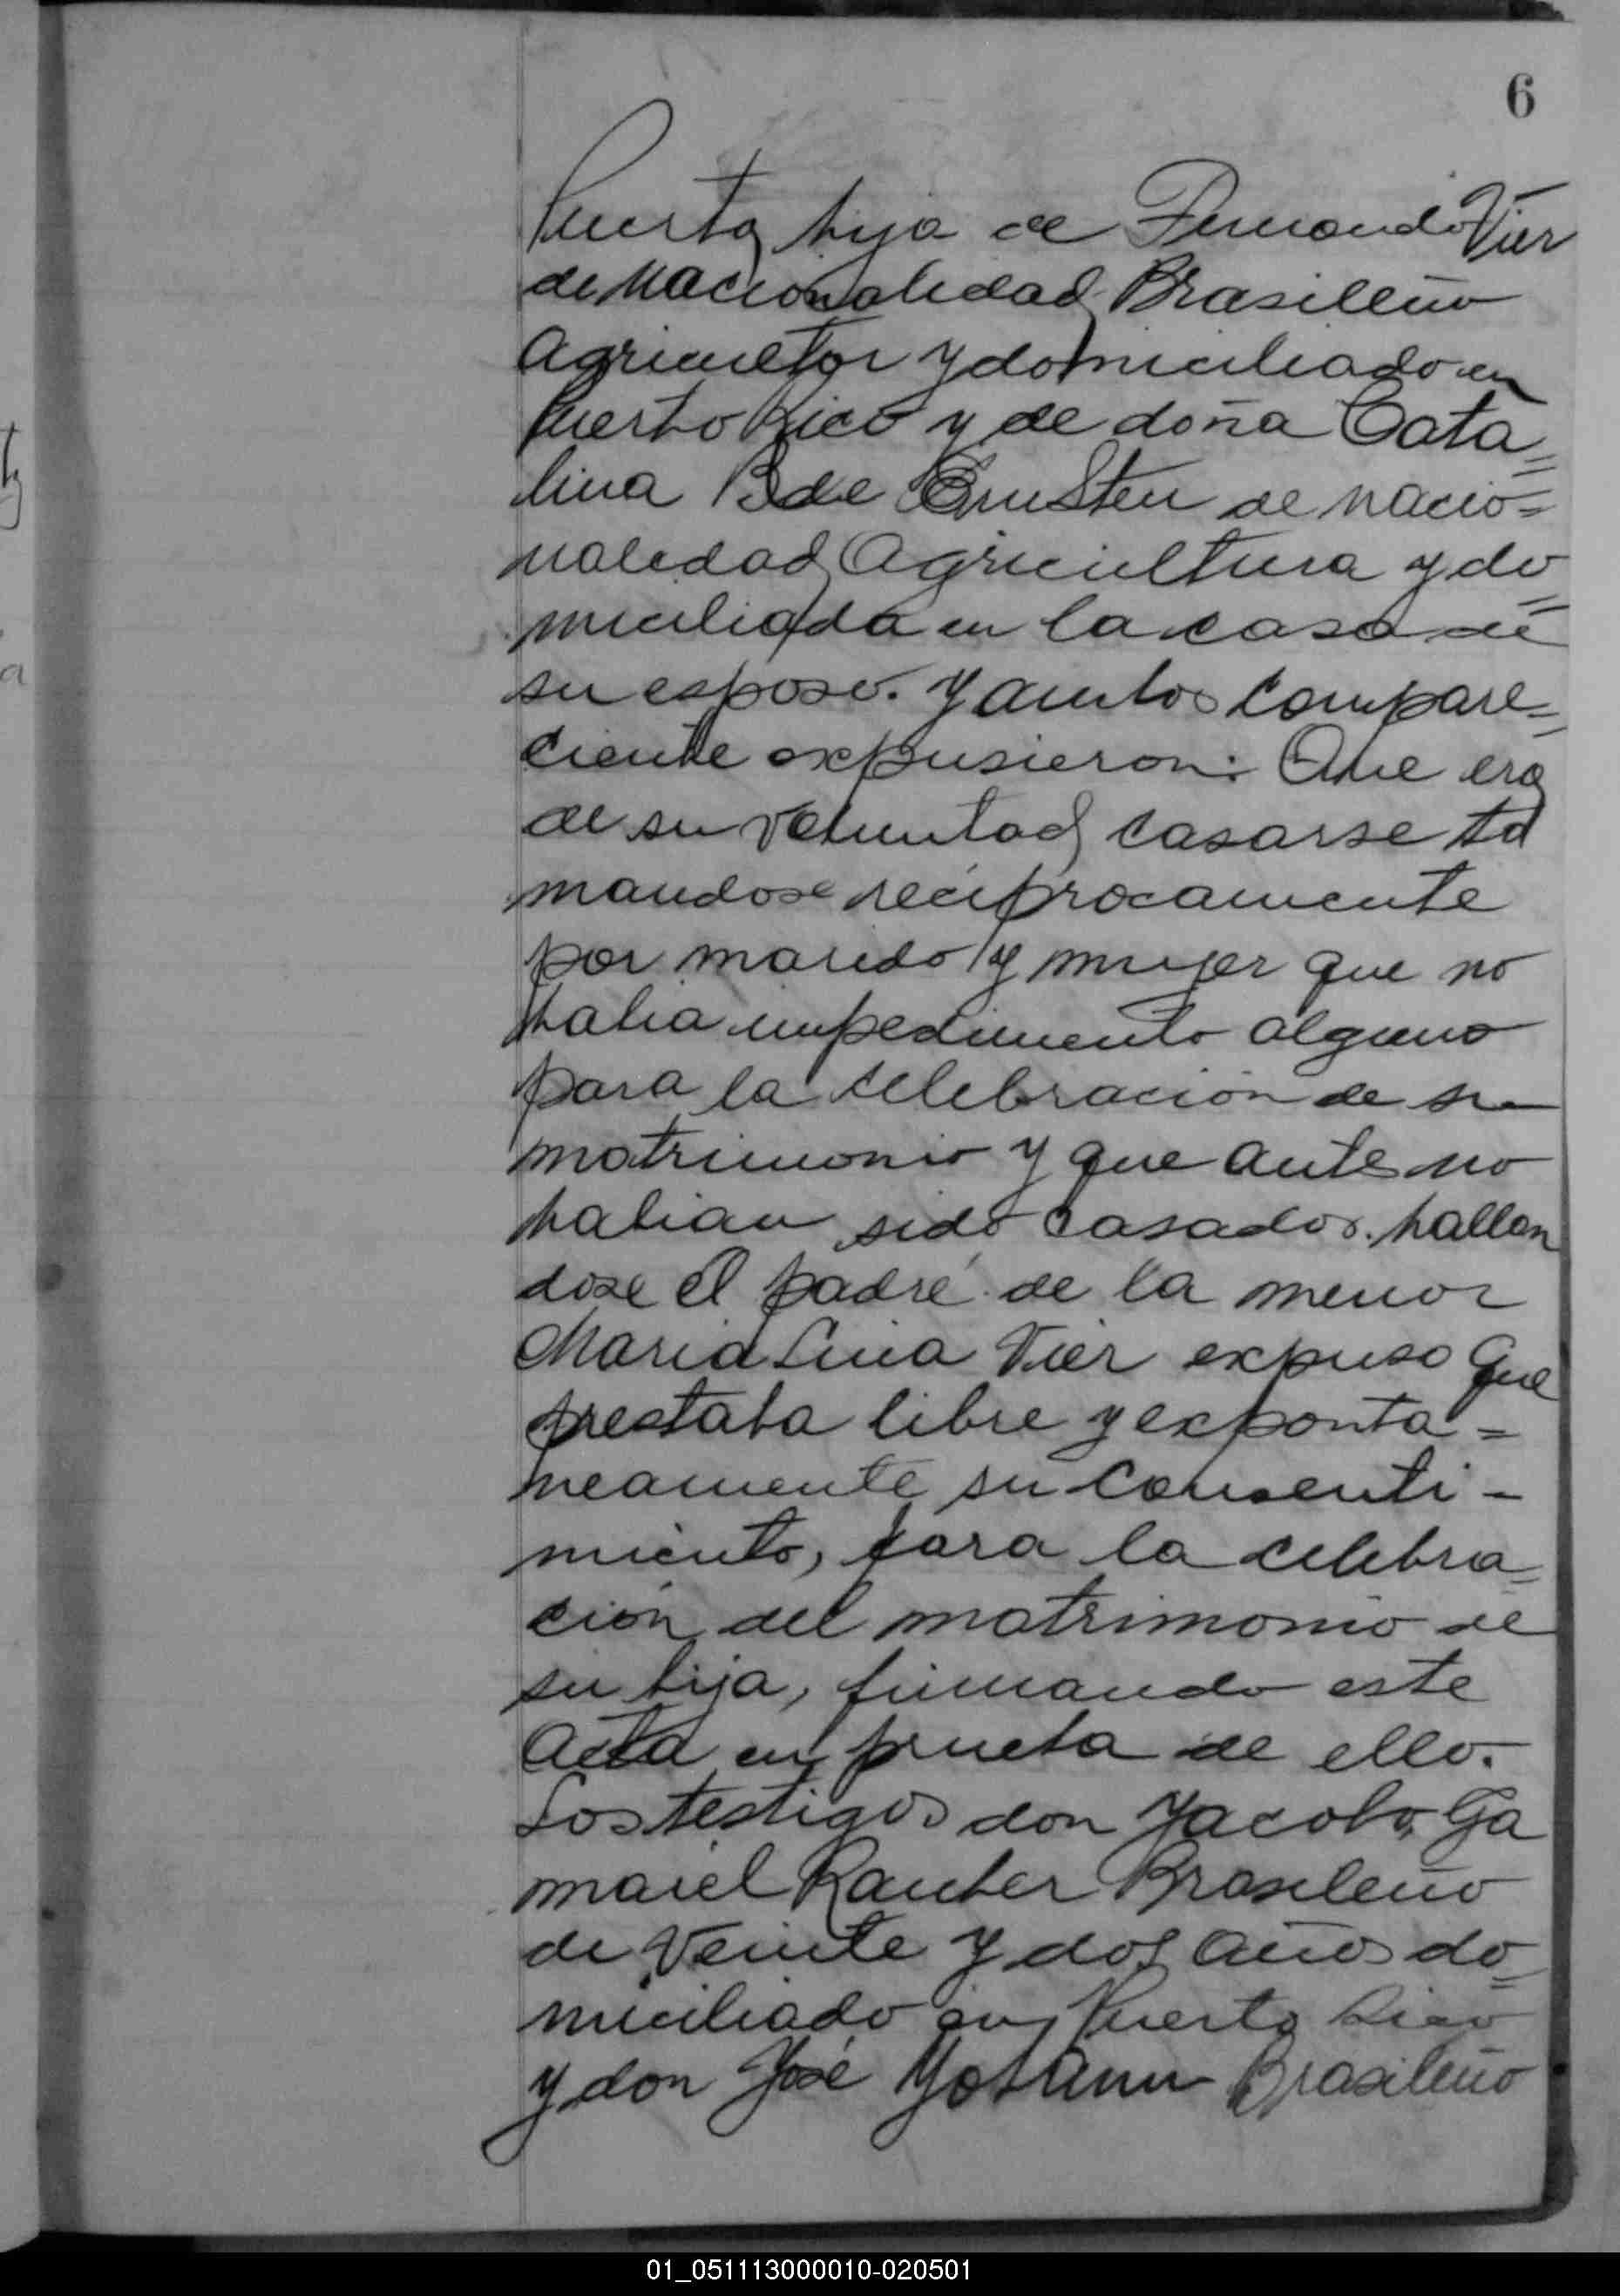 6
Puerto, hija de Fernando Vier
de Nacionalidad Brasileño
Agricultor y domiciliado en
Puerto Rico y de doña Cata=
lina B de de nacio=
nalidad Agricultura y do
miciliada en la casa de
su esposo. Y ambos compare=
ciente expusieron: Que era
de su voluntad casarse to
mandose reciprocamente
por marido y mujer que no
habia impedimento alguno
para la celebración de su
matrimonio y que ante no
habian sido casados. hallan
dose el padre de la menor
Maria Lina Vier expuso que
prestaba libre y exponta=
neamente su consenti-
miento, para la celebra=
ción del matrimonio de
su hija, firmando este
Acta en prueba de ello.
Los testigos don Jacobo Ga
maiel Rauber Brasileño
de Veinte y dos años do=
miciliado en Puerto Rico
y don José Brasileño
01_051113000010-020501